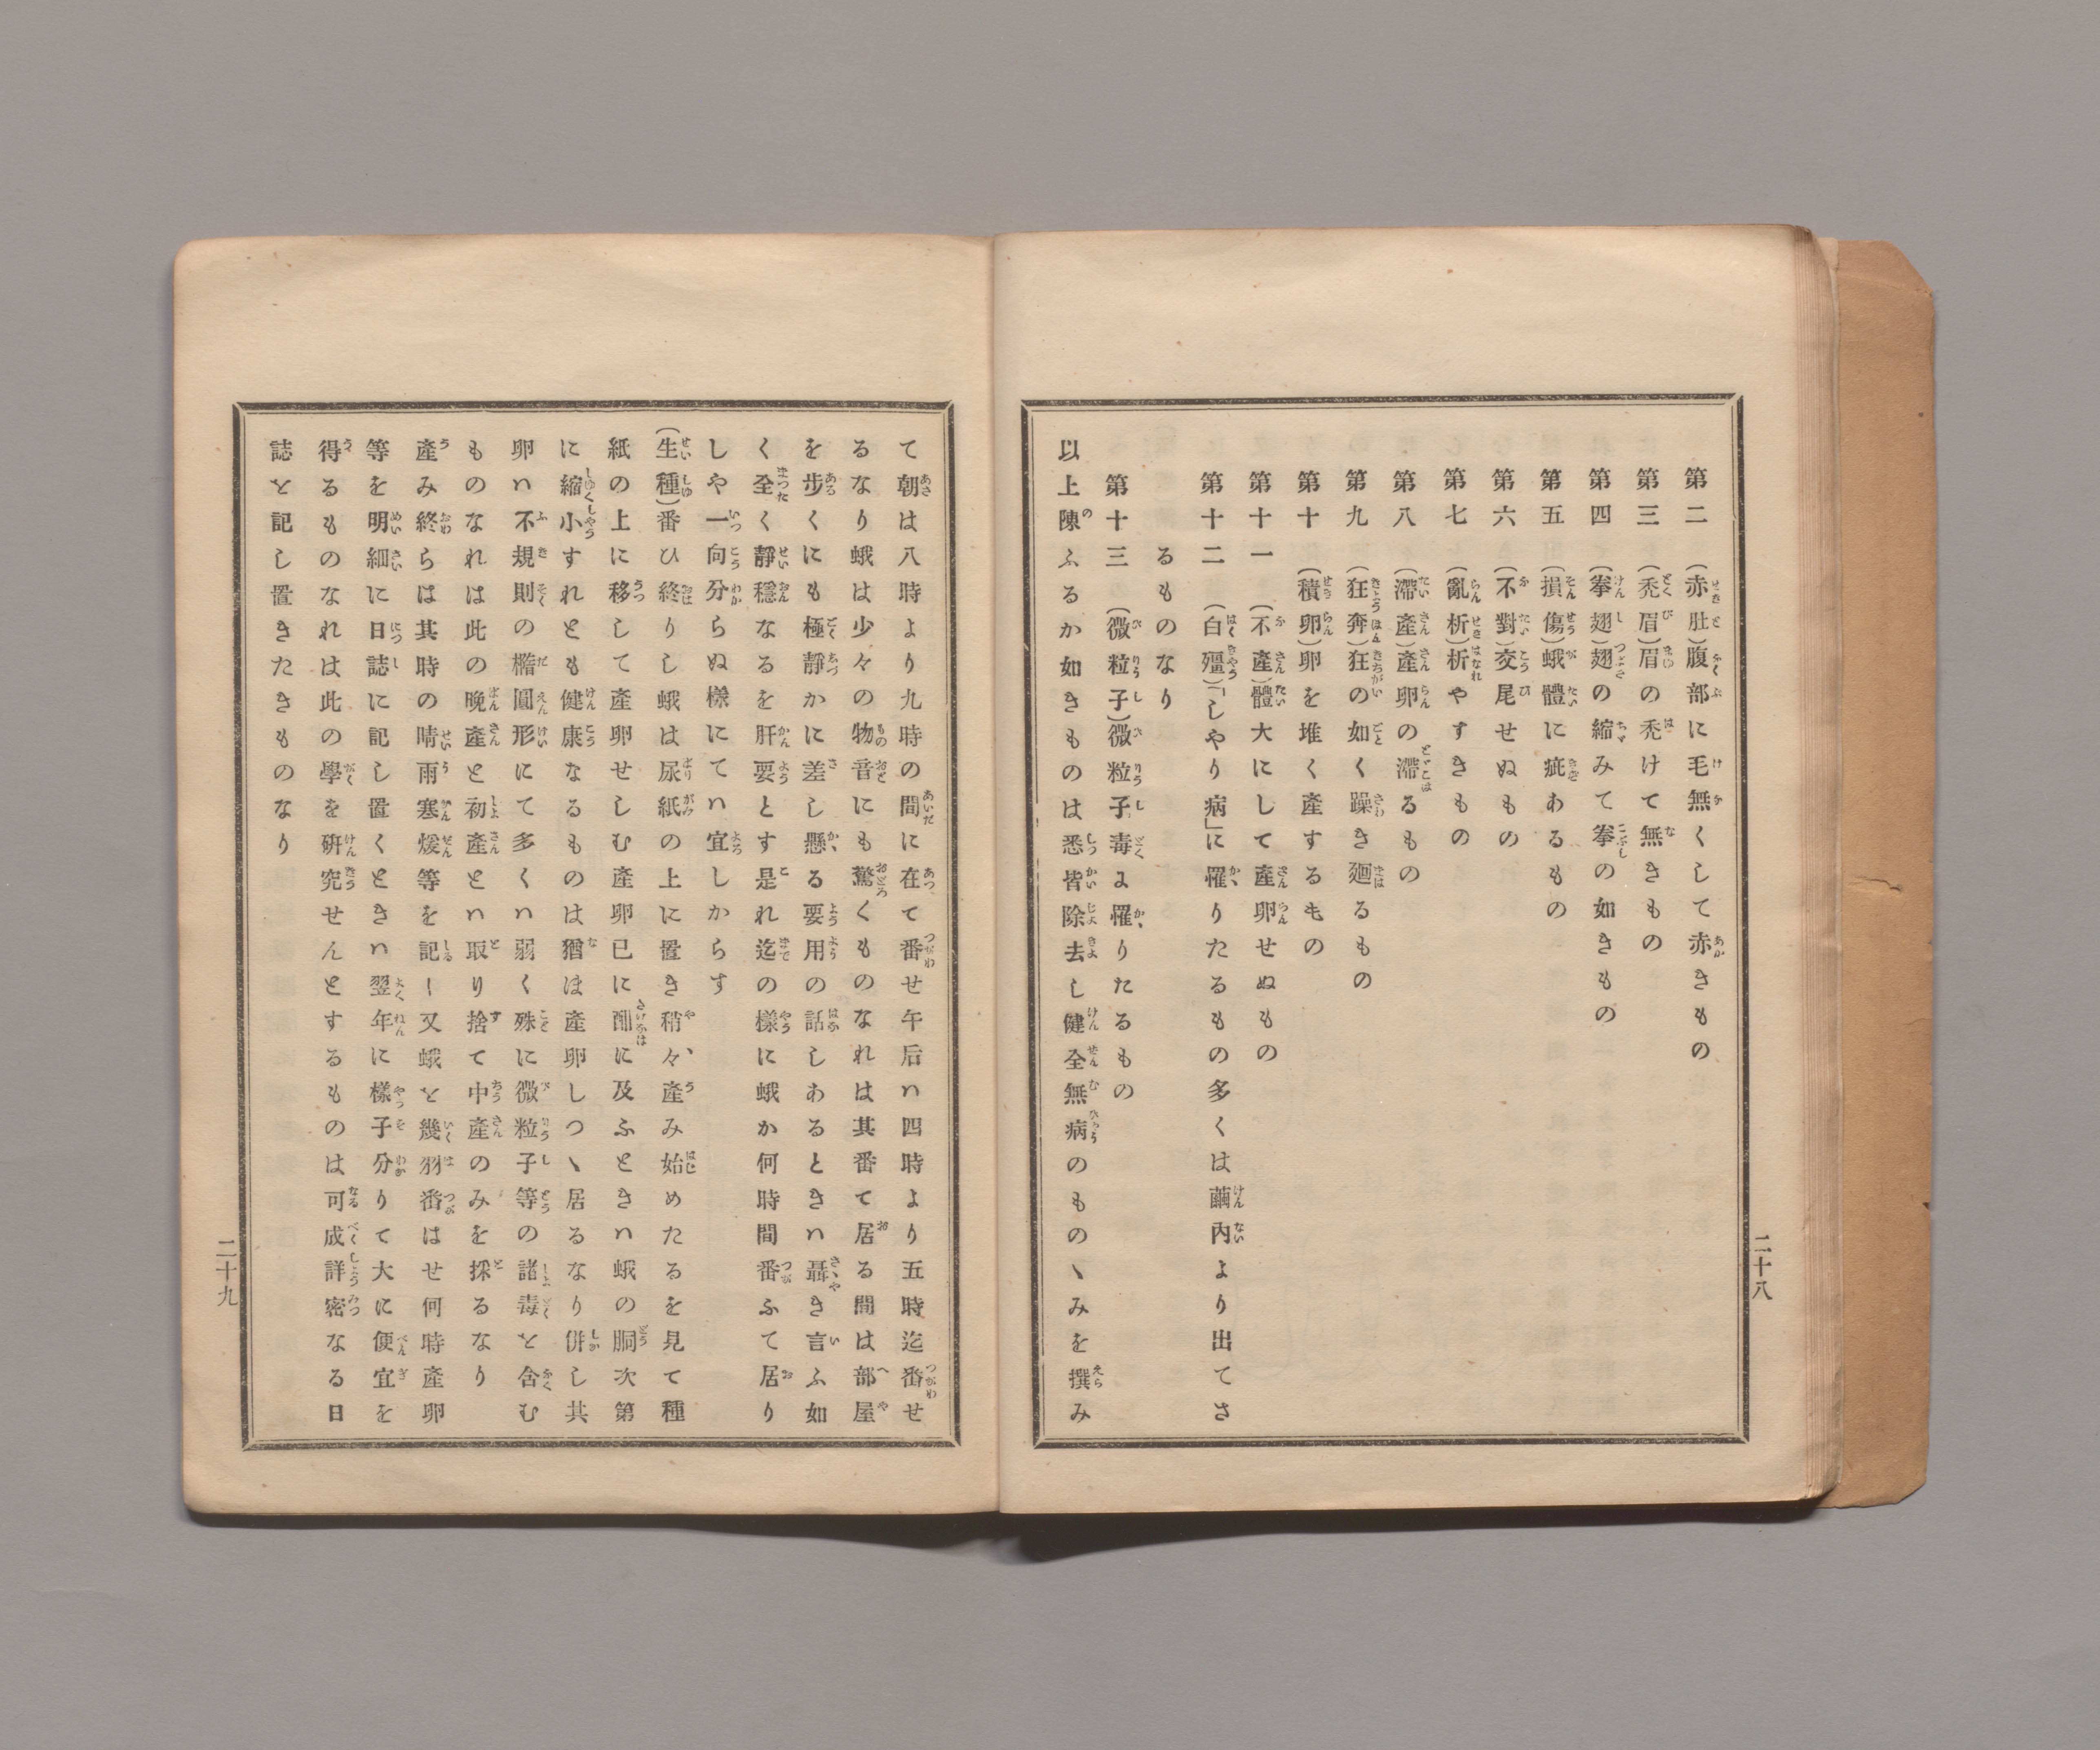 第二　(赤肚)腹部に毛無くして赤きもの
第三　(禿眉)眉の禿けて無きもの
第四　(拳翅)翅の縮みて拳の如きもの
第五　(損傷)蛾體に疵あるもの
第六　(不對)交尾せぬもの
第七　(亂析)析やすきもの
第八　(滯產)產卵の滯るもの
第九　(狂奔)狂の如く躁き廻るもの
第十　(積卵)卵を堆く產するもの
第十一　(不產)體大にして產卵せぬもの
第十二　(白殭)「しやり病」に罹りたるもの多くは繭內より出てさ
るものなり
第十三　(微粒子)微粒子毒に罹りたるもの
以上陳ふるか如きものは悉皆除去し健全無病のものゝみを撰み
二十八
て朝は八時より九時の間に在て番せ午后ハ四時より五時迄番せ
るなり蛾は少々の物音にも驚くものなれは其番て居る間は部屋
を步くにも極靜かに差し懸る要用の話しあるときハ聶き言ふ如
く全く靜穩なるを肝要とす是れ迄の樣に蛾か何時間番ふて居り
しや一向分らぬ樣にてハ宜しからす
(生種)番ひ終りし蛾は尿紙の上に置き稍々產み始めたるを見て種
紙の上に移して產卵せしむ產卵已に酣に及ふときハ蛾の胴次第
に縮小すれとも健康なるものは猶ほ產卵しつゝ居るなり併し其
卵ハ不規則の橢圓形にて多くハ弱く殊に微粒子等の諸毒を含む
ものなれは此の晚產と初產とハ取り捨て中產のみを採るなり
產み終らは其時の晴雨寒煖等を記し又蛾を幾羽番はせ何時產卵
等を明細に日誌に記し置くときハ翌年に樣子分りて大に便宜を
得るものなれは此の學を硏究せんとするものは可成詳密なる日
誌を記し置きたきものなり
二十九